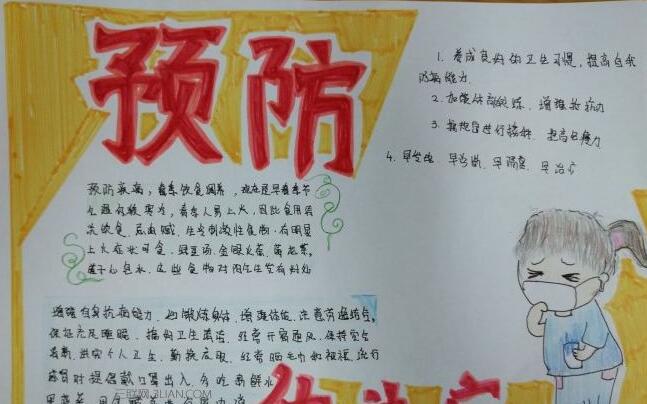 预防
1. 养成良好的卫生习惯，提高自我
防病能力
2. 加强体育锻炼，增强抵抗力
3. 按程序进行接种，提高免疫力
4. 早发现、早诊断、早隔离、早治疗
预防疾病，春季饮食调养，现在是早春季节
气温仍较寒冷，春季人易上火，因此食用清
淡饮食，忌油腻、生冷刺激性食物，有明显
上火症状可食，绿豆汤、金银花茶、菊花茶、
莲子心泡水，这些食物对内心生堂有好处
增强自身抗病能力，如锻炼身体，增强体质，注意劳逸结合，
保证充足睡眠，搞好卫生清洁，经常开窗通风，保持室内
清新，讲究个人卫生，勤换衣服，经常晒毛巾和被褥，流行
感冒时提倡戴口罩出入，多吃新鲜水
三联网 3LIAN.COM